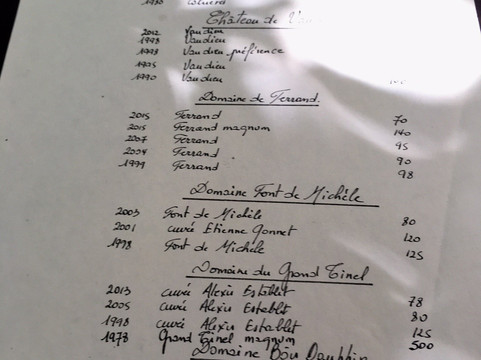 1980
Château de
2012 Vaudieu
1998 Vaudieu
1998 Vaudieu préférence
1995 Vaudieu
1990 Vaudieu
Domaine de Ferrand.
2015 Ferrand 70
2015 Ferrand magnum 140
2007 Ferrand 95
2004 Ferrand 90
1999 Ferrand 98
Domaine Font de Michèle
2003 Font de Michèle 80
2001 cuvée Etienne Gonnet 120
1998 Font de Michèle 125
Domaine du Grand Tinel
2013 cuvée Alexis Establet 78
2005 cuvée Alexis Establet 80
1998 cuvée Alexis Establet 125
1978 Grand Tinel magnum 500
Domaine Bois Dauphin